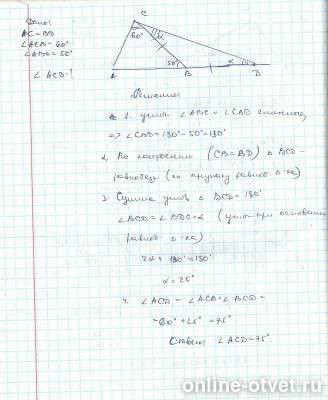 Дано:
AC = BD
∠ACB = 60°
∠ABC = 50°
∠ACD - ?
C
60°
50°
α
A
B
D
Решение
1. углы ∠ABC и ∠CBD смежные,
=> ∠CBD = 180° - 50° = 130°
2. По построению (CB = BD) Δ BCD -
равнобед. (по признаку равноб. Δ-ка)
3. Сумма углов Δ BCD = 180°
∠BCD = ∠BDC = α (углы при основании
равноб. Δ-ка)
2α + 130° = 180°
α = 25°
4. ∠ACD = ∠ACB + ∠BCD =
= 60° + 25° = 75°
Ответ: ∠ACD = 75°.
online-otvet.ru